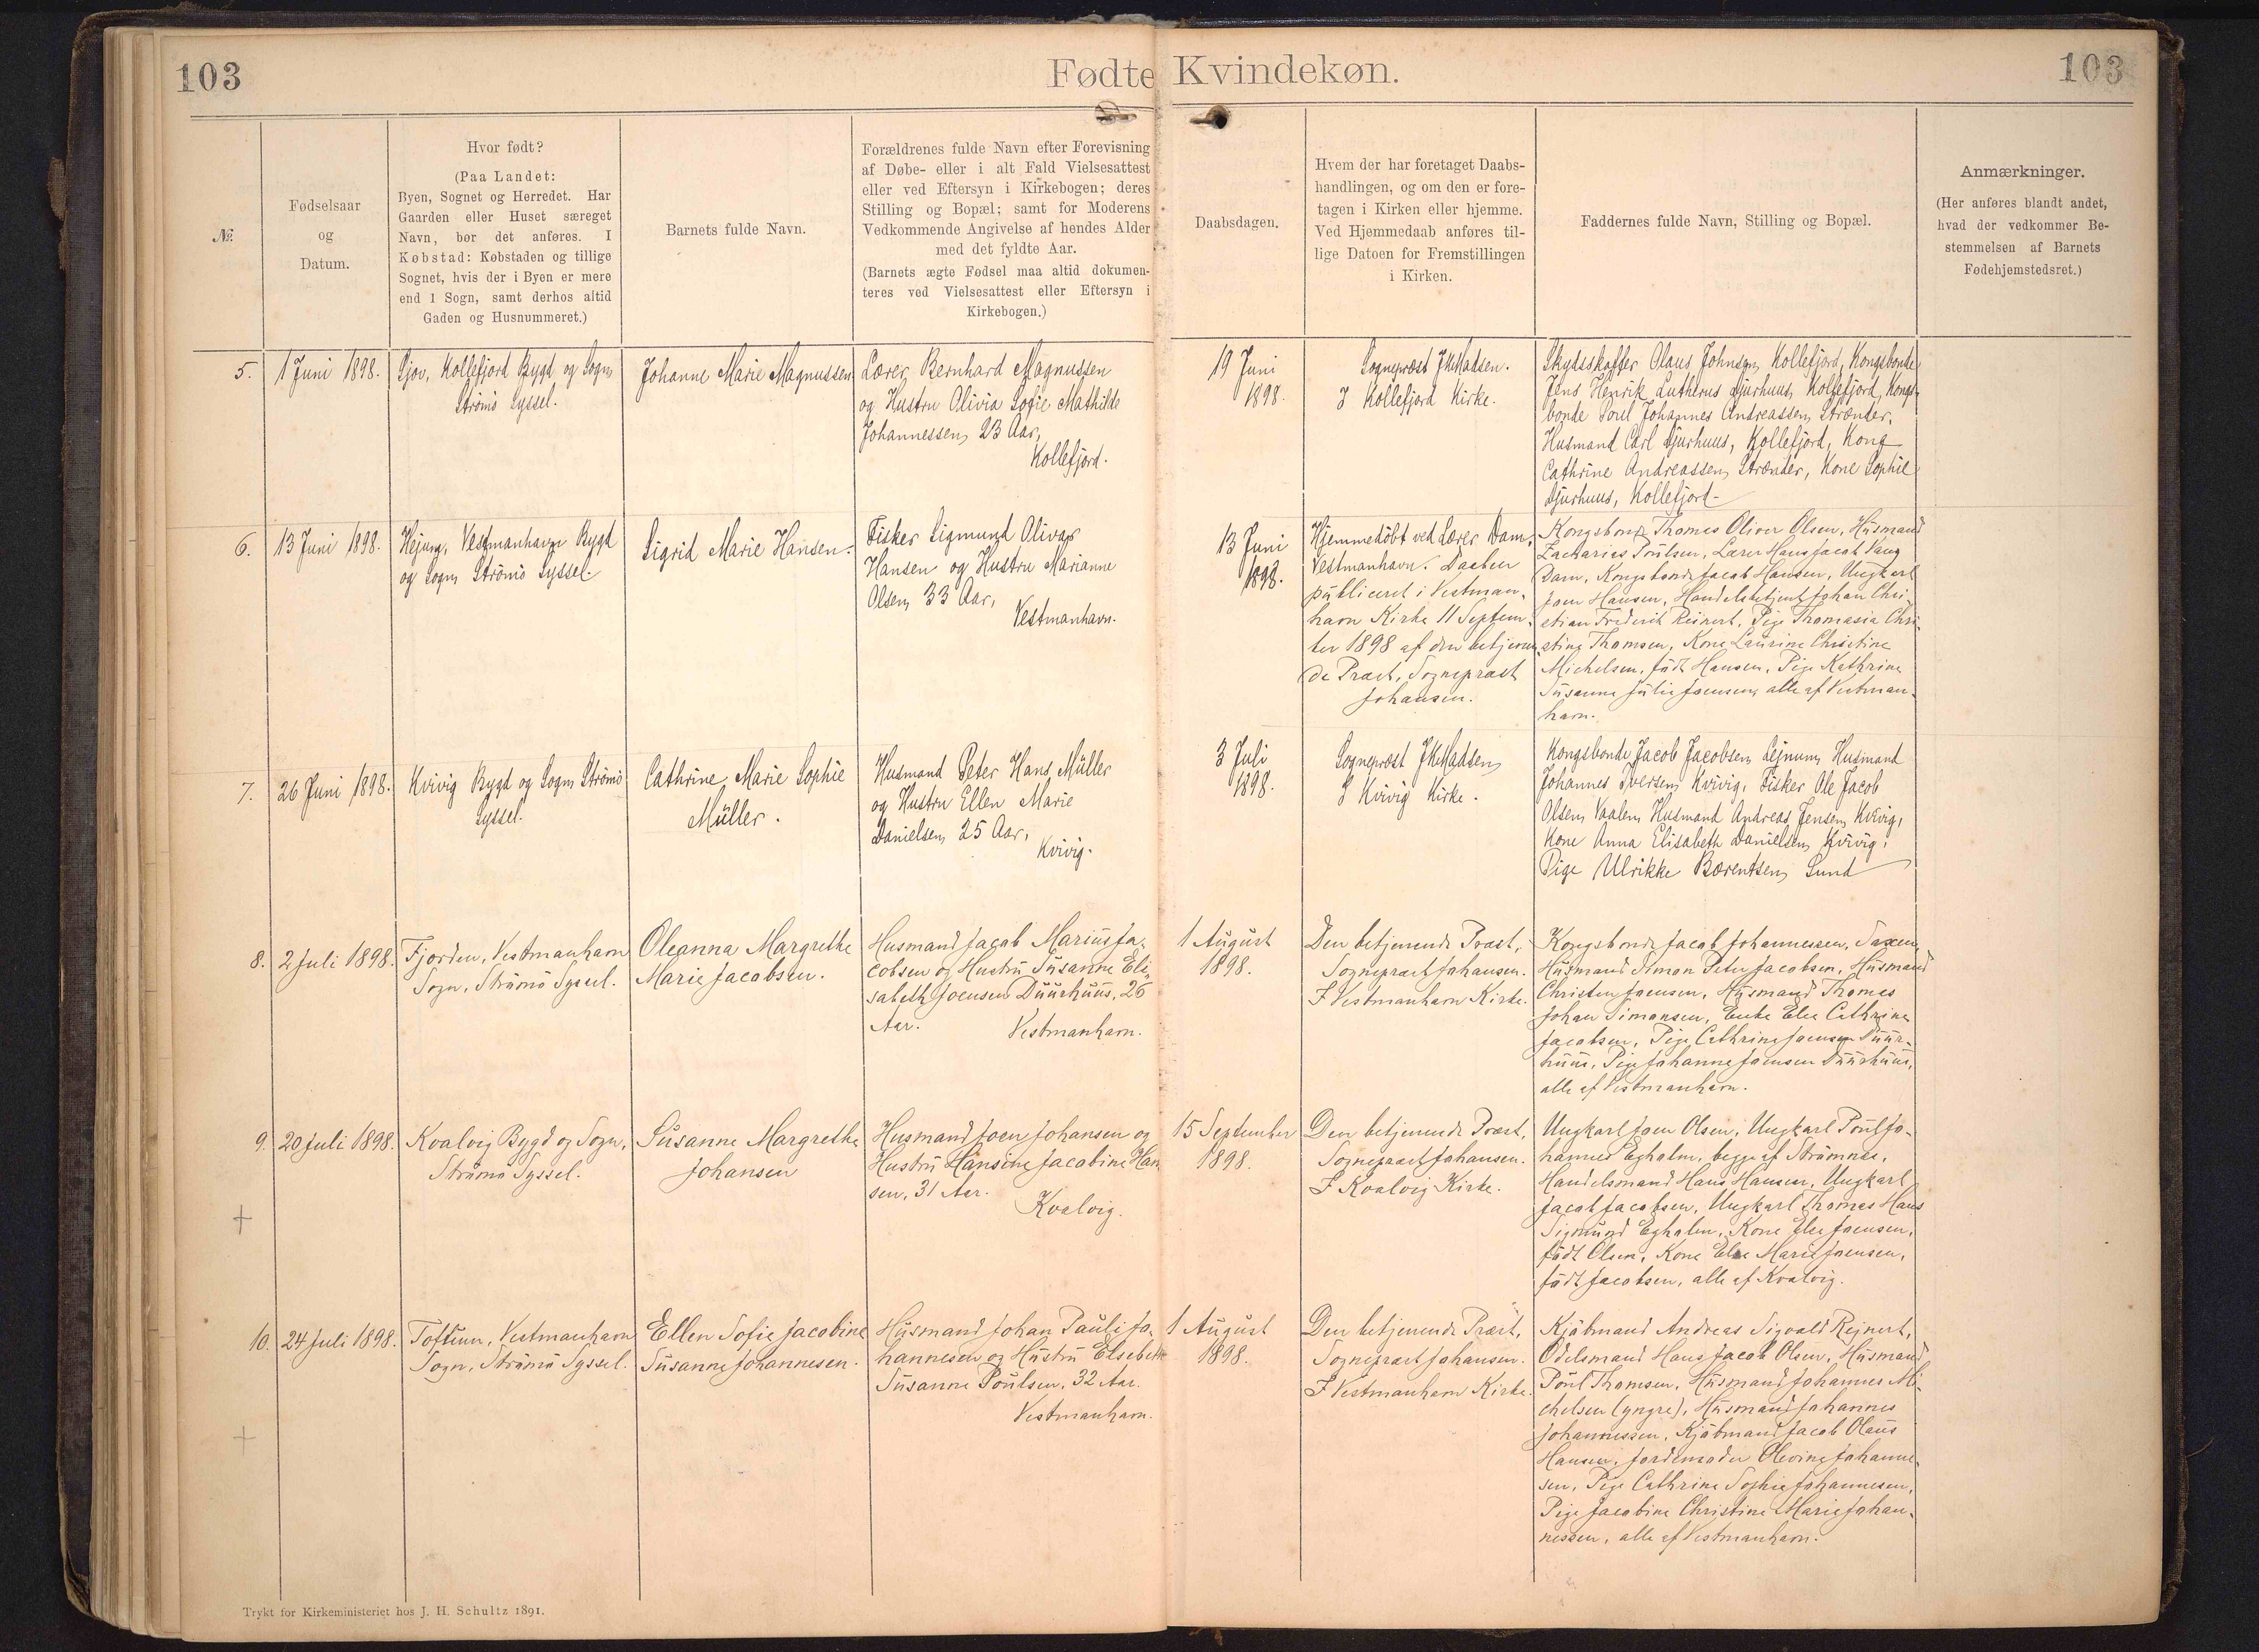 103
Fødte Kvindekøn.
103
№
Fødselsaar
og
Datum.
Hvor født?
(Paa Landet:
Byen, Sognet og Herredet. Har
Gaarden eller Huset særeget
Navn, bør det anføres. I
Købstad: Købstaden og tillige
Sognet, hvis der i Byen er mere
end 1 Sogn, samt derhos altid
Gaden og Husnummeret.)
Barnets fulde Navn.
Forældrenes fulde Navn efter Forevisning
af Døbe- eller i alt Fald Vielsesattest
eller ved Eftersyn i Kirkebogen; deres
Stilling og Bopæl; samt for Moderens
Vedkommende Angivelse af hendes Alder
med det fyldte Aar.
(Barnets ægte Fødsel maa altid dokumen-
teres ved Vielsesattest eller Eftersyn i
Kirkebogen.)
Daabsdagen.
Hvem der har foretaget Daabs-
handlingen, og om den er fore-
tagen i Kirken eller hjemme.
Ved Hjemmedaab anføres til-
lige Datoen for Fremstillingen
i Kirken.
Faddernes fulde Navn, Stilling og Bopæl.
Anmærkninger.
(Her anføres blandt andet,
hvad der vedkommer Be-
stemmelsen af Barnets
Fødehjemstedsret.)
5.
1 Juni 1898.
Sjov, Kollefjord Bygd og Sogn
Strömö Syssel.
Johanne Marie Magnussen
Lærer Bernhard Magnussen
og Hustru Olivia Sofie Mathilde
Johannessen, 23 Aar,
Kollefjord.
19 Juni
1898.
Sognepræst JKMadsen.
I Kollefjord Kirke.
Skydsskaffer Olaus Johnsen, Kollefjord, Kongsbonde
Jens Henrik Lutherus Djurhuus, Kollefjord, Kongs-
bonde Poul Johannes Andreassen, Strænder,
Husmand Carl Djurhuus, Kollefjord, Kone
Cathrine Andreassen, Strænder, Kone Sophie
Djurhuus, Kollefjord-
6.
13 Juni 1898.
Hejum, Vestmanhavn Bygd
og Sogn, Strömö Syssel.
Sigrid Marie Hansen.
Fisker Sigmund Olivar
Hansen og Hustru Marianne
Olsen, 33 Aar,
Vestmanhavn.
13 Juni
1898.
Hjemmedöbt ved Lærer Dam,
Vestmanhavn. Daaben
publiceret i Vestman-
havn Kirke 11 Septem-
ber 1898 af den betjenen-
de Præst, Sognepræst
Johansen.
Kongsbonde Thomas Oliver Olsen, Husmand
Zacharias Poulsen, Lærer Hans Jacob Vang
Dam, Kongsbonde Jacob Hansen, Ungkarl
Joen Hansen, Handelsbetjent Johan Chri-
stian Frederik Reinert, Pige Thomasia Chri-
stine Thomsen, Kone Laurine Christine
Michelsen, født Hansen, Pige Kathrine
Susanne Julie Joensen, alle af Vestman-
havn.
7.
26 Juni 1898.
Kvivig Bygd og Sogn, Strömö
Syssel.
Cathrine Marie Sophie
Müller.
Husmand Peter Hans Müller
og Hustru Ellen Marie
Danielsen, 25 Aar,
Kvivig.
3 Juli
1898.
Sognepræst JKMadsen,
I Kvivig Kirke.
Kongsbonde Jacob Jacobsen, Lejnum, Husmand
Johannes Iversen, Kvivig, Fisker Ole Jacob
Olsen, Vaalen, Husmand Andreas Jensen, Kvivig,
Kone Anna Elisabeth Danielsen, Kvivig,
Pige Ulrikke Bærentsen, Sund
8.
2 Juli 1898.
Fjorden, Vestmanhavn
Sogn, Strömö Syssel.
Oleanna Margrethe
Marie Jacobsen.
Husmand Jacob Marius Ja-
cobsen og Hustru Susanne Eli-
sabeth Joensen Duurhuus, 26
Aar.
Vestmanhavn.
1 August
1898.
Den betjenende Præst,
Sognepræst Johansen.
I Vestmanhavn Kirke.
Kongsbonde Jacob Johannessen, Saxen,
Husmand Simon Peter Jacobsen, Husmand
Christen Joensen, Husmand Thomas
Johan Simonsen, Enke Else Cathrine
Jacobsen, Pige Cathrine Joensen Duur-
huus, Pige Johanne Joensen Duurhuus,
alle af Vestmanhavn.
9.
20 Juli 1898.
Kvalvig Bygd og Sogn,
Strömö Syssel.
Susanne Margrethe
Johansen
Husmand Joen Johansen og
Hustru Hansine Jacobine Han-
sen, 31 Aar.
Kvalvig.
15 September
1898.
Den betjenende Præst,
Sognepræst Johansen.
I Kvalvig Kirke.
Ungkarl Joen Olsen, Ungkarl Poul Jo-
hannes Egholm, begge af Strömnes,
Handelsmand Hans Hansen, Ungkarl
Jacob Jacobsen, Ungkarl Thomas Hans
Sigmund Egholm, Kone Else Joensen,
födt Olsen, Kone Else Marie Joensen,
födt Jacobsen, alle af Kvalvig.
+
10.
24 Juli 1898.
Toftum, Vestmanhavn
Sogn, Strömö Syssel.
Ellen Sofie Jacobine
Susanne Johannesen.
Husmand Johan Pauli Jo-
hannesen og Hustru Elsebeth
Susanne Poulsen, 32 Aar.
Vestmanhavn.
1 August
1898.
Den betjenende Præst,
Sognepræst Johansen.
I Vestmanhavn Kirke.
Kjöbmand Andreas Sigvald Rejnert,
Odelsmand Hans Jacob Olsen, Husmand
Poul Thomsen, Husmand Johannes Mi-
chelsen (yngre), Husmand Johannes
Johannessen, Kjöbmand Jacob Olaus
Hansen, Jordemoder Olevine Johanne-
sen, Pige Cathrine Sophie Johannesen,
Pige Jacobine Christine Marie Johan-
nessen, alle af Vestmanhavn.
+
Trykt for Kirkeministeriet hos J. H. Schultz 1891.